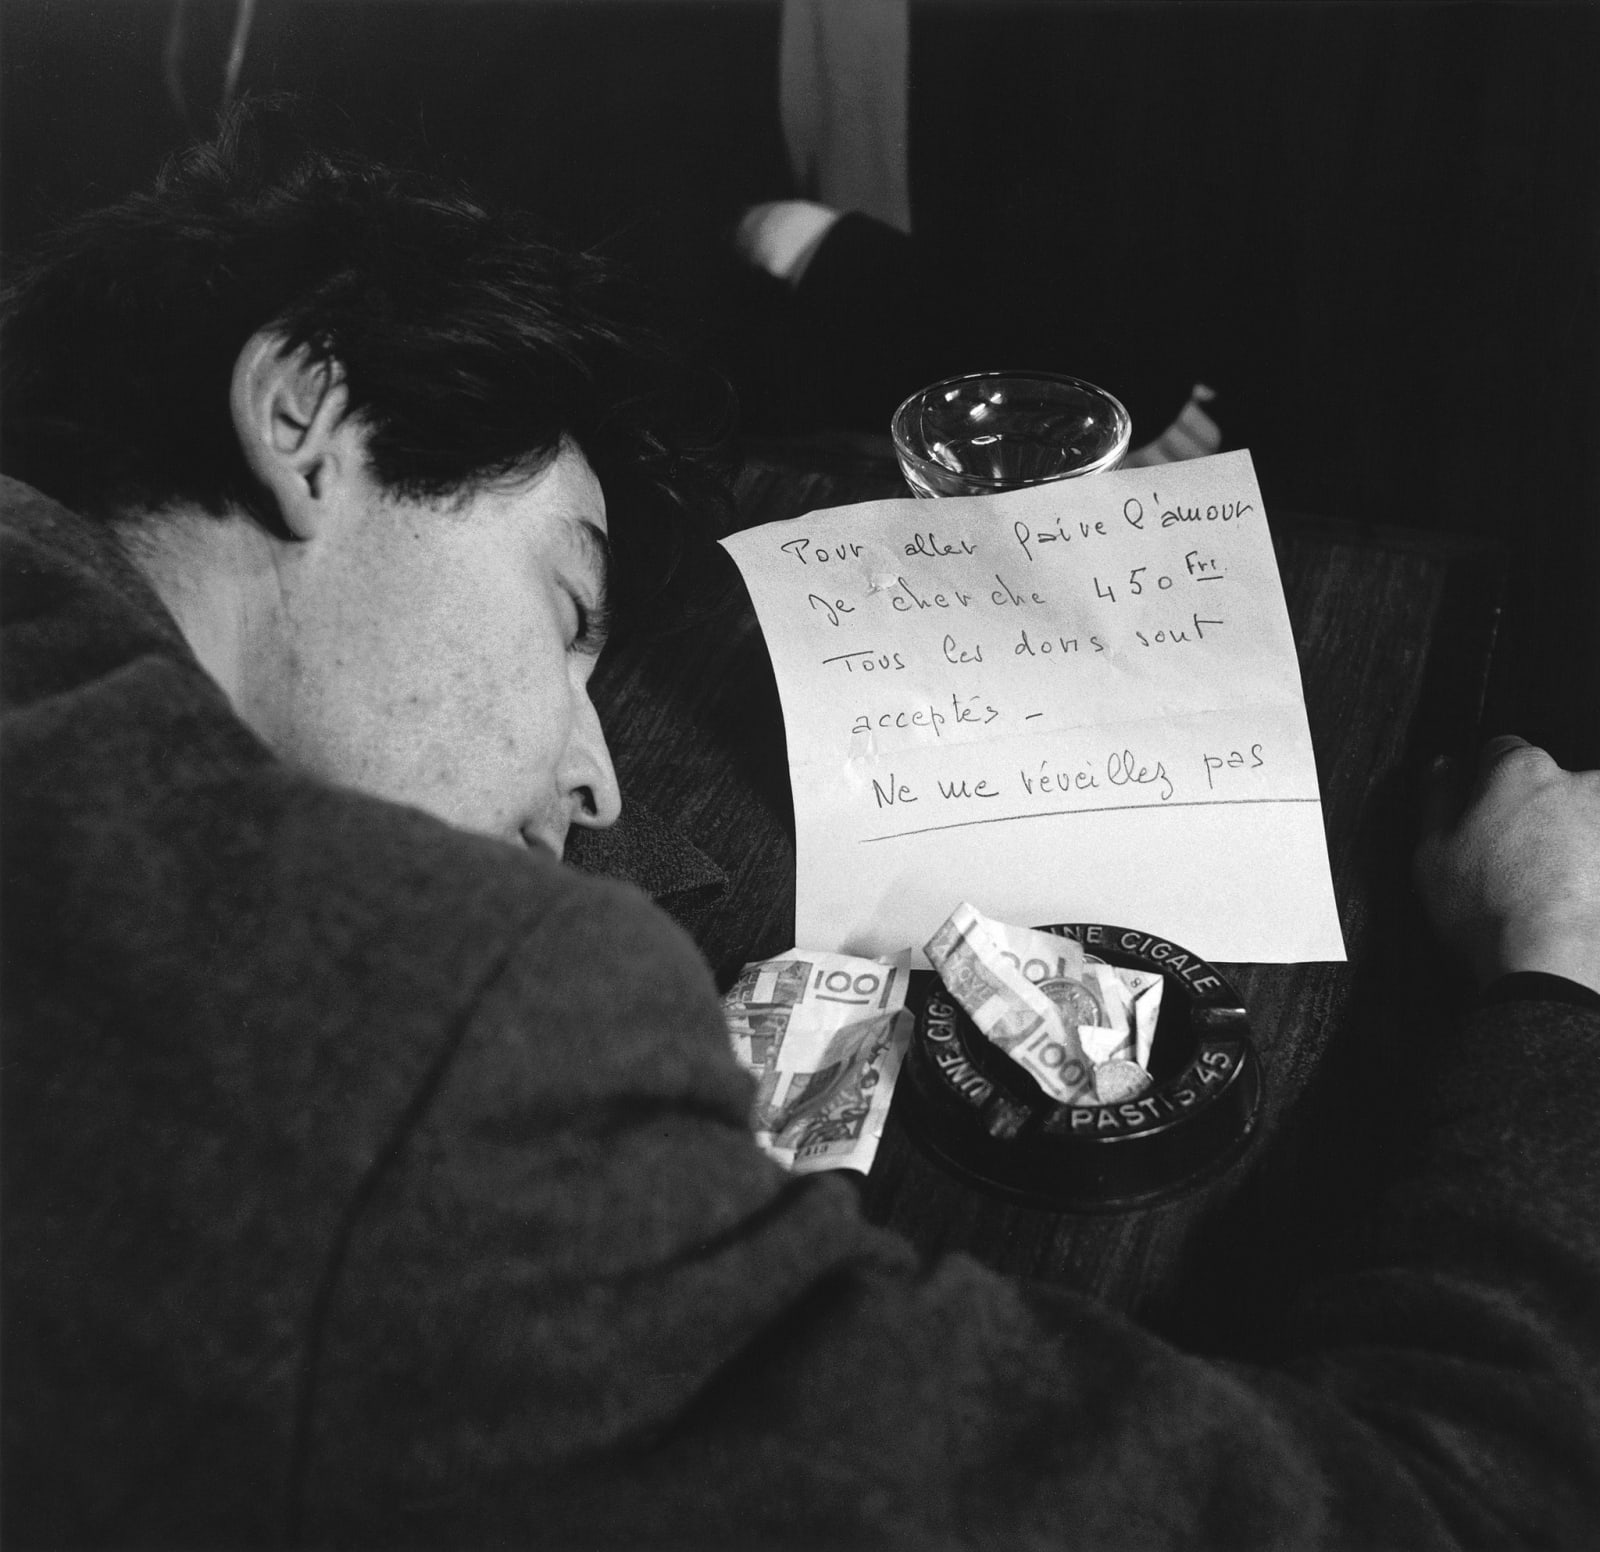 Pour aller faire l'amour
Je cherche 450 Frs
Tous les dons sont
acceptés –
Ne me réveillez pas
100
UNE CIGALE
UNE CIG
PASTIS 45
100
100